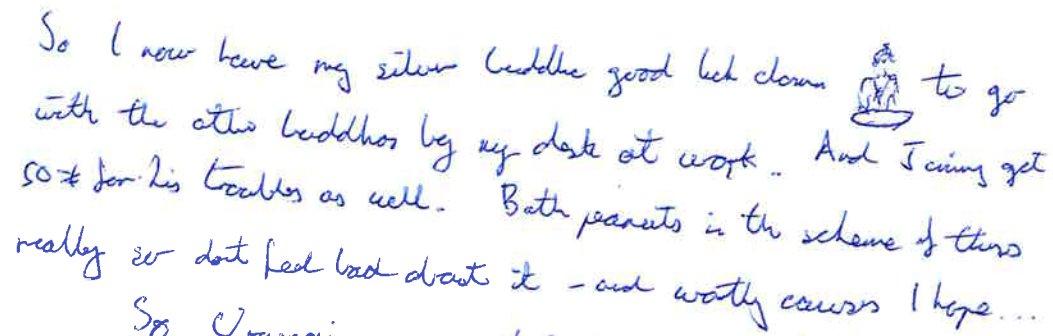 So I now have my silver buddha good luck charm to go
with the other buddhas by my desk at work.. And Jaimy get
50 for his troubles as well. Both peanuts in the scheme of things
really so dont feel bad about it - and worthy causes I hope...
So